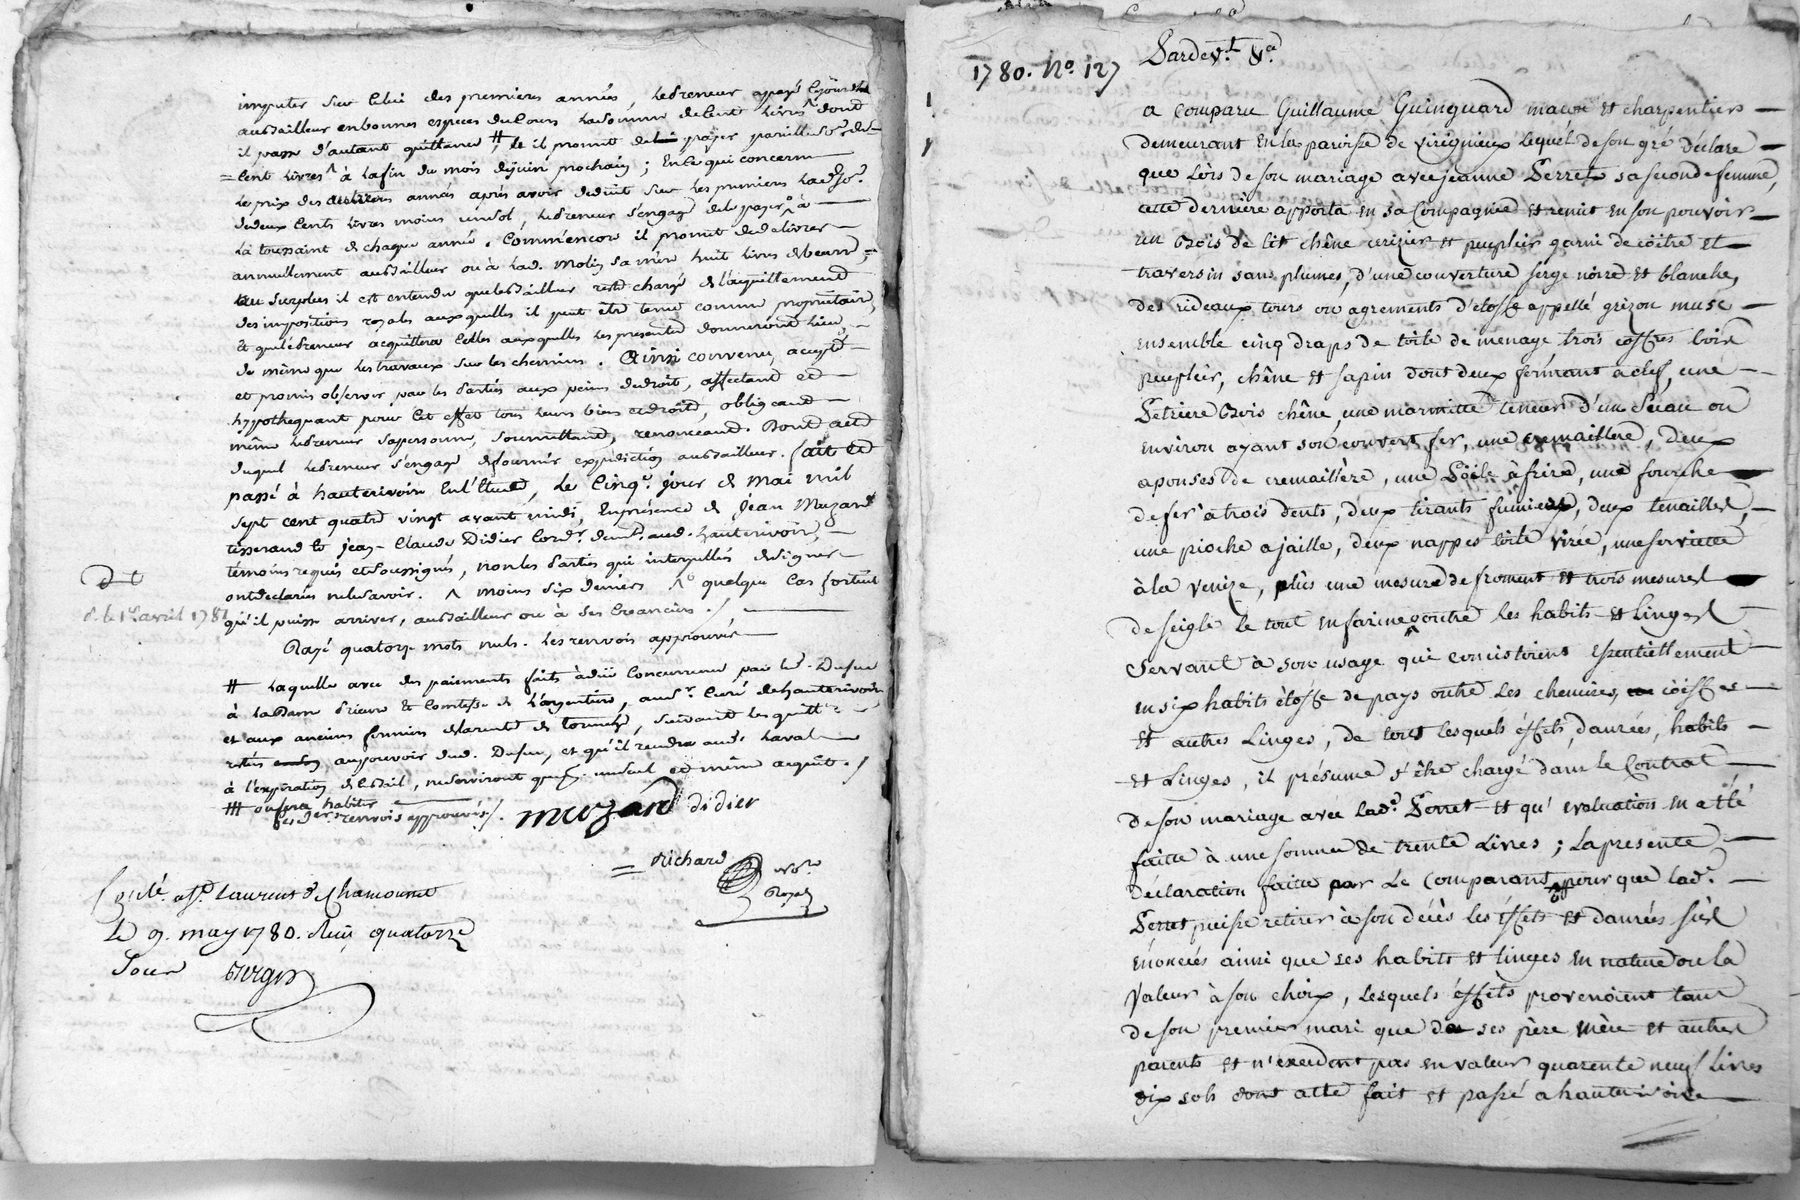 imputer sur celui des premieres années, ledit preneur a payé cejourdhui
aud. bailleur en bonnes especes du cours la somme de cent livres dont
il passe d'autant quittance # & il promet de payer pareille somme de
cent livres à la fin du mois de juin prochain; en ce qui concerne
le prix des autres années après avoir deduit sur les premiers lad. so.e
de deux cents livres moins un sol, led. preneur s'engage de le payer à
la toussaint de chaque année. Comm'encore il promet de delivrer
annuellement aud. bailleur ou à lad. Molin sa mère huit livres de beurre;
au surplus il est entendu que led. bailleur reste chargé de l'acquittement
des impositions royales auxquelles il peut être tenu comme propriétaire,
et que led. preneur acquittera celles auxquelles les presentes donneront lieu,
de même que les travaux sur les chemins. Ainsi convenu, accepté
et promis observer par les parties aux peines de droit, affectant et
hypothequant pour cet effet tous leurs biens et droits, obligeant
même led. preneur sa personne, soumettant, renonceant. Dont acte
duquel led. preneur s'engage de fournir expedition aud. bailleur. fait et
passé à hauterivoire en l'étude, le cinq.e jour de mai mil
sept cent quatre vingt avant midi, en présence de Jean Muzard
tisserand & jean-Claude Didier cord.r dem.t aud. hauterivoire,
témoins requis et soussignés, non les parties qui interpellés de signer
ont declaré ne le savoir. ^ moins six deniers ^o quelque cas fortuit
qu'il puisse arriver, aud. bailleur ou à ses creanciers./
d t
d. le 1er avril 1781
Rayé quatorze mots nuls. les renvois approuvés
# laquelle avec des paiements faits à dire concurrence par led. Dufue
à la Dame Prieure & Comtesse de l'argentiere, au s.r Curé de hauterivoire
et aux anciens fermiers de la rente de , suivant les quitt.es
restées au pouvoir dud. Dufue, et qu'il rendra aud. Laval
à l'expiration de led. bail, ne serviront que d'un seul et même acquit./
### ou fera habiter
les dern.ers renvois approuvés/. muzard didier
Richard
No.re
Royal
Contr.lé à St. Laurent de Chamousset
Le 9. may 1780. Reçu quatorze s.
Pour Burgin
1780. No. 127
Pardev.t &.a
a comparu Guillaume Guinguard maçon et charpentier
demeurant en la paroisse de viriginieux lequel de son gré déclare
que lors de son mariage avec jeanne Perret sa seconde femme,
cette dernière apporta en sa compagnie et remit en son pouvoir
un bois de lit chêne cerizier et peuplier garni de coëtre et
traversin sans plumes, d'une couverture serge noire et blanche,
des rideaux tours ou agrements d'etoffe appellé grizon musc
ensemble cinq draps de toile de menage trois coffres bois
peuplier, chêne et sapin dont deux fermant à clef, une
Petriere bois chêne, une marmitte teneur d'un seau ou
environ ayant son couvert fer, une cremaillere, deux
aponses de cremaillère, une Poële à frire, une fourche
de fer à trois dents, deux tirants fumier, deux tenailles,
une pioche a jaille, deux nappes toile virée, une serviette
à la venize, plus une mesure de froment et trois mesures
de seigle le tout en farine outre les habits et linges
servant à son usage qui concistoient essentiellement
en six habits étoffe de pays outre les chemises, coiffes
et autres Linges, de touts lesquels éffets, danrées, habits
et Linges, il présume s'être chargé dans le Contrat
de son mariage avec lad.e Perret et qu'evaluation en a été
faitte à une somme de trente Livres; la presente
déclaration faitte par Le comparant pour que lad.e
Perret puisse retirer à son décès les éffets et danrées sus
énoncées ainsi que ses habits et linges en nature ou la
valeur à son choix, lesquels éffets provenoient tant
de son premier mari que de ses père mère et autres
parents et n'excedent pas en valeur quarente neuf Livres
dix sols dont acte fait et passé a hauterivoire